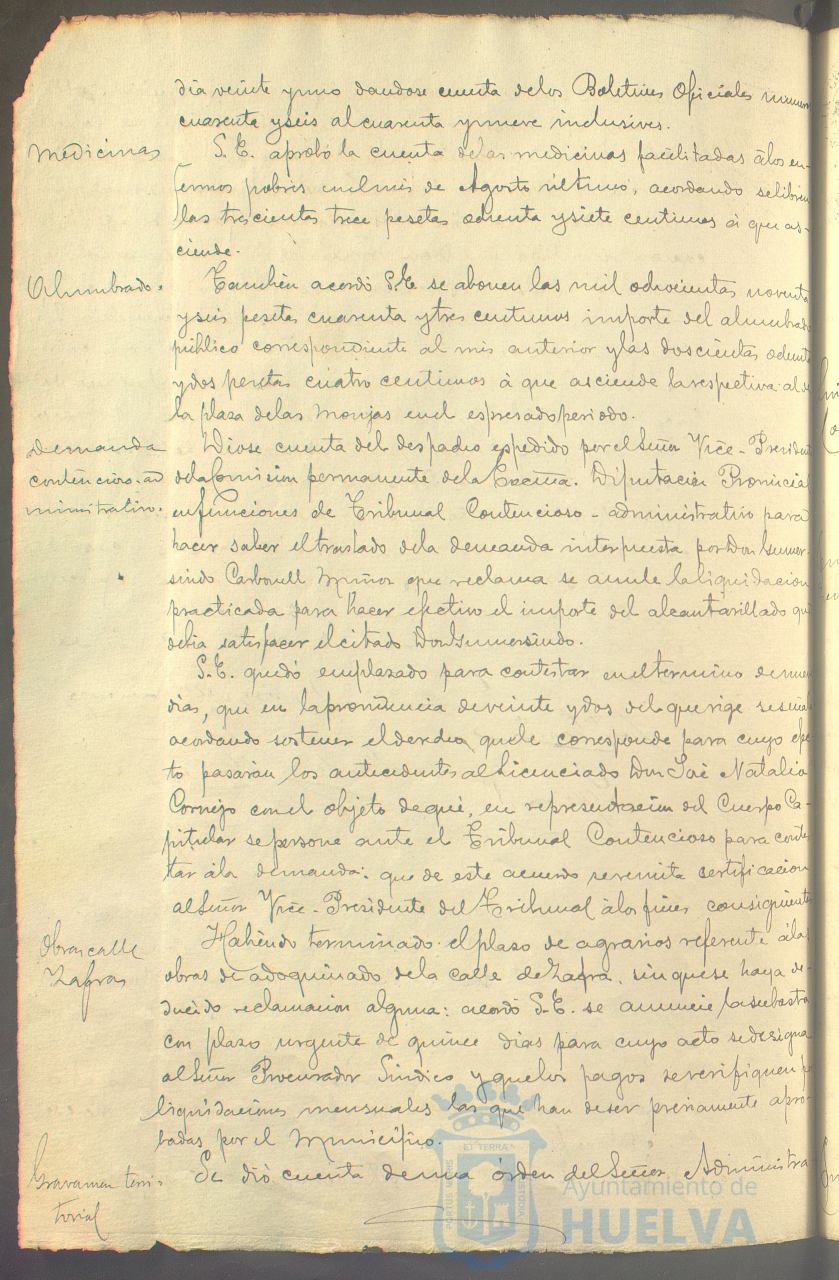 dia veinte y uno dandose cuenta de los Boletines Oficiales numero
cuarenta y seis al cuarenta y nueve inclusives.
Medicinas
S. E. aprobó la cuenta de las medicinas facilitadas á los en-
fermos pobres en el mes de Agosto último, acordando se libren
las trescientas trece pesetas ochenta y siete centimos á que as-
ciende.
Alumbrado.
Tambien acordó S. E. se abonen las mil ochocientas noventa
y seis pesetas cuarenta y tres centimos importe del alumbrado
público correspondiente al mes anterior y las doscientas ochenta
y dos pesetas cuatro centimos á que asciende la respetiva al de
la plaza de las Monjas en el espresado periodo.
Demanda
contencioso-ad
ministrativo.
Diose cuenta del despacho espedido por el Señor Vice-President
de la Comision permanente de la Excma. Diputacion Provincial
en funciones de Tribunal Contencioso-administrativo para
hacer saber el traslado de la demanda interpuesta por Don Gumer-
sindo Carbonell Muñoz que reclama se anule la liquidacion
practicada para hacer efectivo el importe del alcantarillado que
debia satisfacer el citado Don Gumersindo.
S. E. quedó emplazado para contestar en el termino de nueve
dias, que en la providencia de veinte y dos del que rige se señala
acordando sostener el derecho que le corresponde para cuyo efec
to pasaran los antecedentes al Licenciado Don José Natalio
Cornejo con el objeto de que, en representacion del Cuerpo Ca-
pitular se persone ante el Tribunal Contencioso para contes
tar á la demanda: que de este acuerdo se remita certificacion
al Señor Vice-Presidente del Tribunal á los fines consiguientes
Obras calle
Zafra
Habiendo terminado el plazo de agravios referente á las
obras de adoquinado de la calle de Zafra, sin que se haya de-
ducido reclamacion alguna: acordó S. E. se anuncie la subasta
con plazo urgente de quince dias para cuyo acto se designa
al Señor Procurador Sindico y que los pagos se verifiquen p
liquidaciones mensuales las que han de ser previamente apro-
badas por el Municipio.
Gravamen terri-
torial
Se dió cuenta de una órden del Señor Administra-
ET TERRÆ
PORTUS MARIS
CUSTODIA
Ayuntamiento de
HUELVA